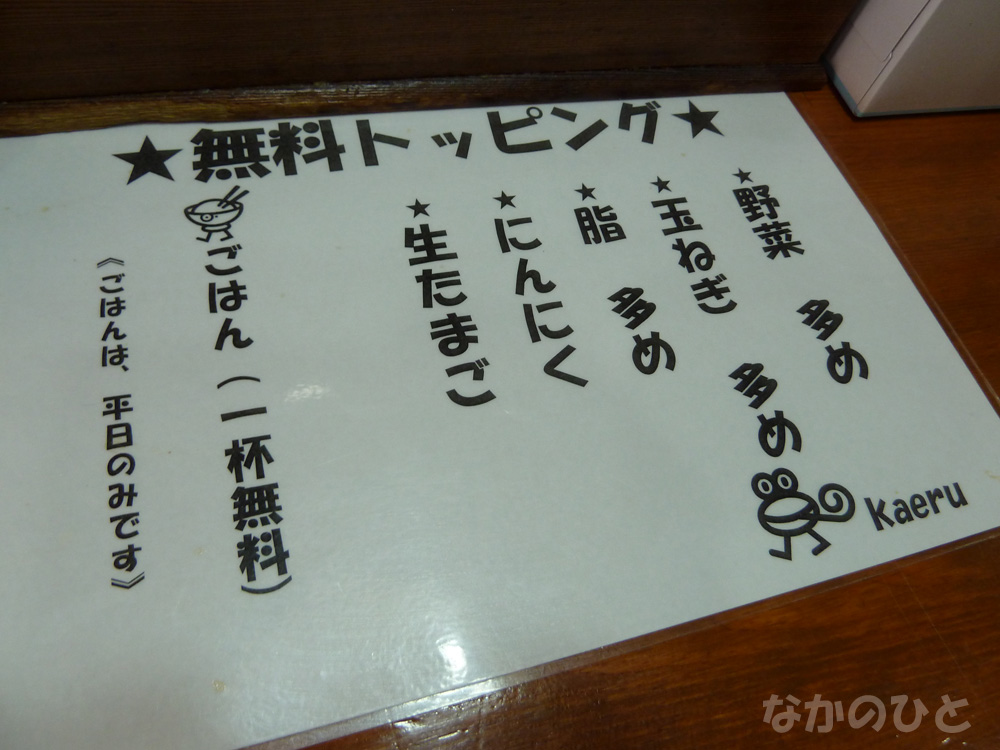 ★無料トッピング★
★野菜 多め
★玉ねぎ 多め
★脂 多め
★にんにく
★生たまご
ごはん(一杯無料)
《ごはんは、平日のみです》
kaeru
なかのひと